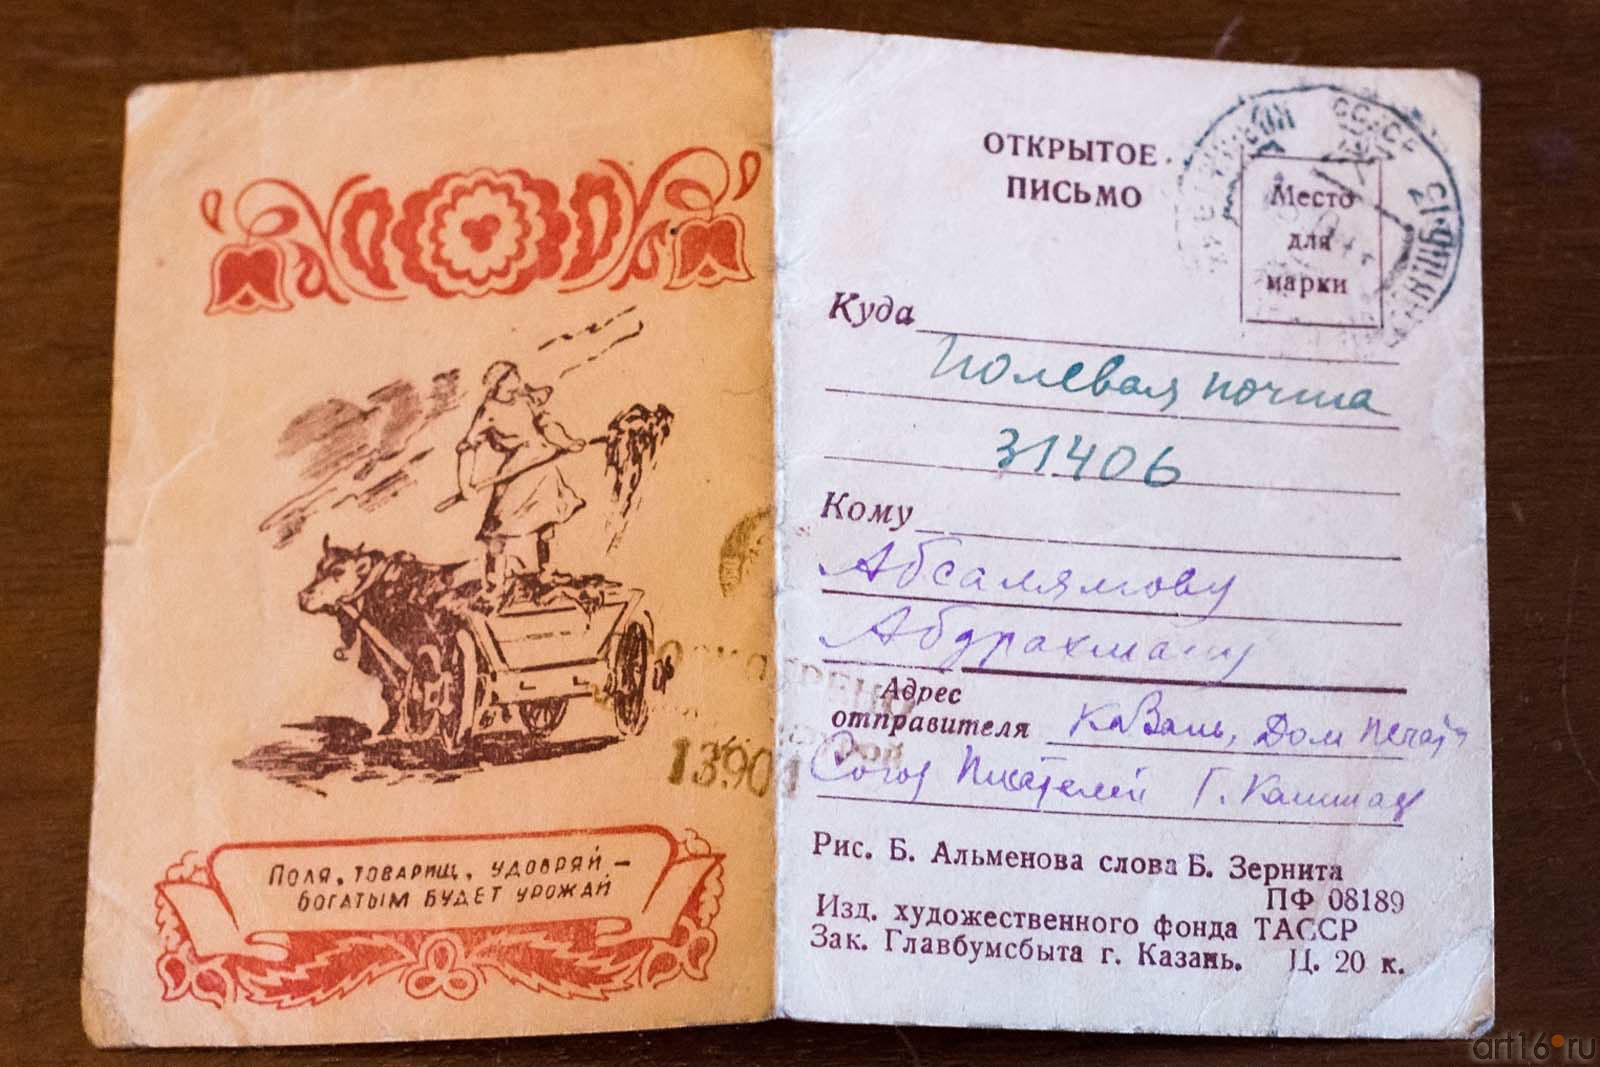 Поля, товарищ, удобряй –
богатым будет урожай
13904
ОТКРЫТОЕ
ПИСЬМО
Место
для
марки
Куда
Полевая почта
31406
Кому
Абсалямову
Абдрахману
Адрес
отправителя Казань, Дом Печати
Союз Писателей Г. Кашшаф
Рис. Б. Альменова слова Б. Зернита
ПФ 08189
Изд. художественного фонда ТАССР
Зак. Главбумсбыта г. Казань. Ц. 20 к.
art16.ru